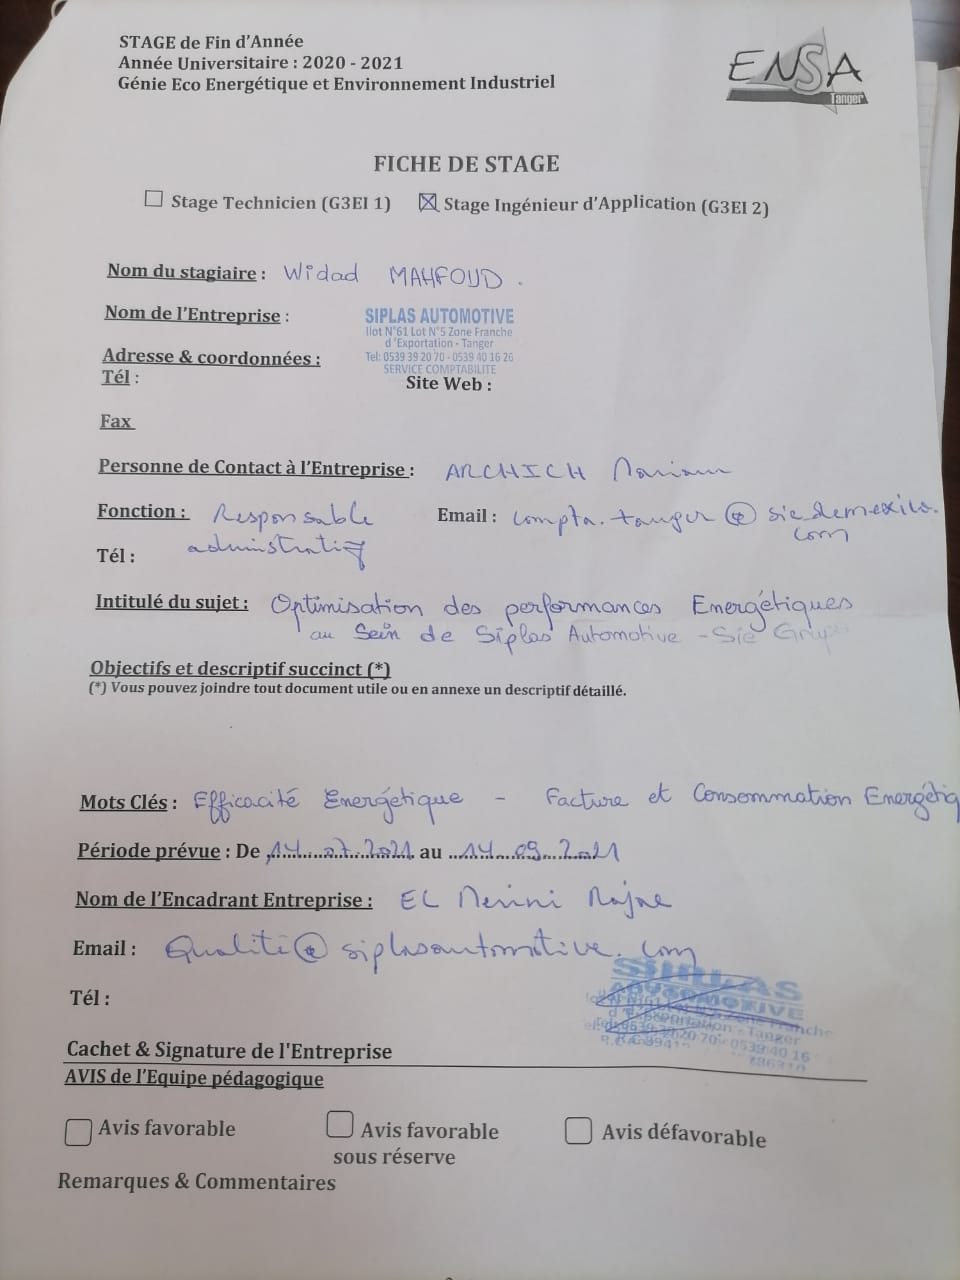 STAGE de Fin d'Année
Année Universitaire : 2020 - 2021
Génie Eco Energétique et Environnement Industriel
ENSA
Tanger
FICHE DE STAGE
Stage Technicien (G3EI 1) Stage Ingénieur d'Application (G3EI 2)
Nom du stagiaire : Widad MAHFOUD .
Nom de l'Entreprise : SIPLAS AUTOMOTIVE
Ilot N°61 Lot N°5 Zone Franche
d'Exportation - Tanger
Adresse & coordonnées : Tel: 0539 39 20 70 - 0539 40 16 26
SERVICE COMPTABILITE
Tél : Site Web :
Fax
Personne de Contact à l'Entreprise : ARCHICH
Fonction : Responsable Email : compta.tanger@
administratif com
Tél :
Intitulé du sujet : Optimisation des performances Energétiques
au Sein de Siplas Automotive - Sie
Objectifs et descriptif succinct (*)
(*) Vous pouvez joindre tout document utile ou en annexe un descriptif détaillé.
Mots Clés : Efficacité Energétique - Facture et Consommation Energétiq
Période prévue : De 14.07.2021 au 14.09.2021
Nom de l'Encadrant Entreprise : EL
Email : Qualite@siplasautomotive.com
Tél :
SIPLAS
AUTOMOTIVE
Zone Franche
d'Exportation - Tanger
20 70 - 0539 40 16
Cachet & Signature de l'Entreprise
AVIS de l'Equipe pédagogique
Avis favorable Avis favorable Avis défavorable
sous réserve
Remarques & Commentaires